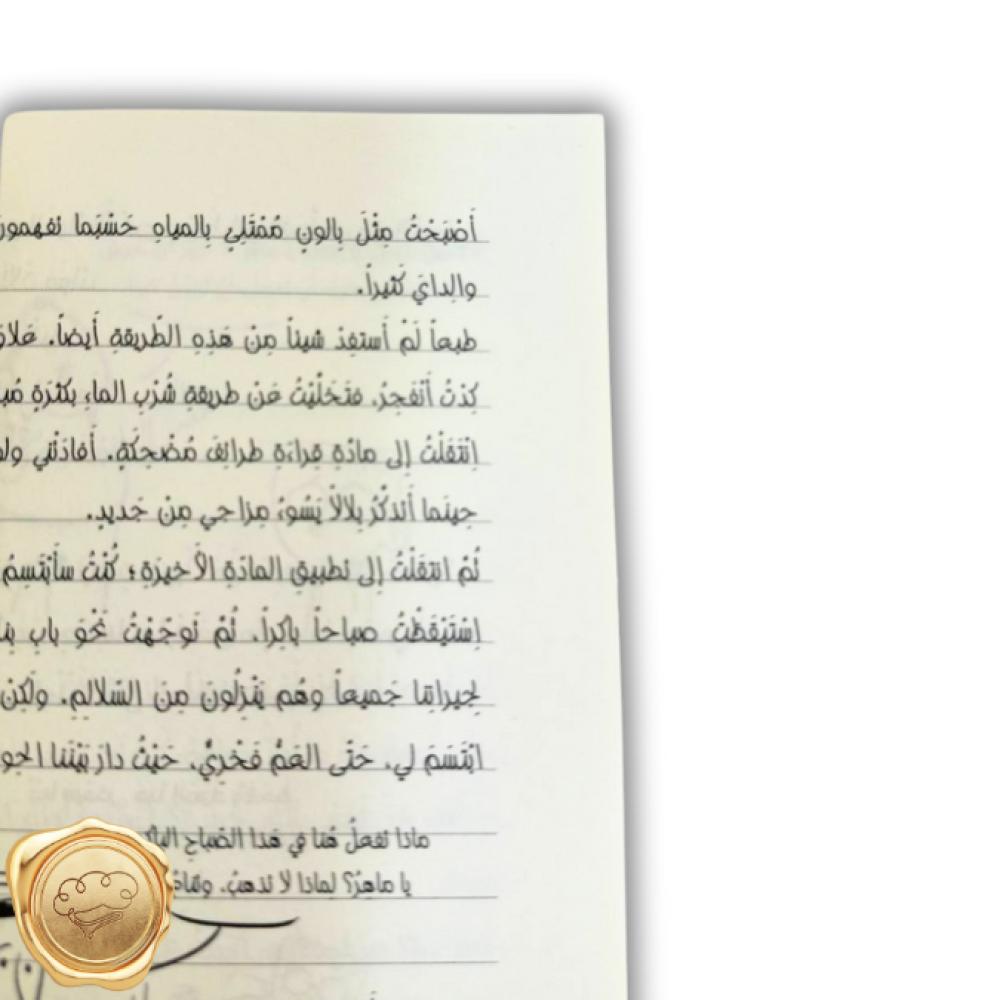 أَصْبَحْتُ مِثْلَ بالونٍ مُمْتَلِئٍ بِالمياهِ حَسْبَما تفهمون
والِدايَ كَثيراً.
طبعاً لَمْ أَستفِدْ شيئاً مِنْ هَذِهِ الطَّريقةِ أَيضاً.
كِدْتُ أَنْفَجِرُ. فتَخَلَّيْتُ عَنْ طريقةِ شُرْبِ الماءِ بكَثْرَةٍ
اِنْتَقَلْتُ إلى مادّةِ قِراءَةِ طرائِفَ مُضْحِكَةٍ. أَفادَتْني
حِينَما أَتذكَّرُ بِلالاً يَسُوءُ مِزاجي مِنْ جَديدٍ.
ثُمَّ انتقَلْتُ إِلى تطبيقِ المادّةِ الأَخيرَةِ؛ كُنْتُ سأَبْتَسِمُ
اِسْتَيْقَظْتُ صباحاً باكِراً. ثُمَّ تَوجَّهْتُ نَحْوَ باب
لِجيرانِنا جَميعاً وهُم يَنْزِلونَ مِنَ السَّلالِمِ. ولَكِنْ
ابْتَسَمَ لي. حَتّى العَمُّ فَخْرِيٌّ. حَيْثُ دارَ بَيْنَنا
ماذا تفعلُ هُنا في هَذا الصَّباحِ
يا ماهِرُ؟ لِماذا لا تذهبُ.